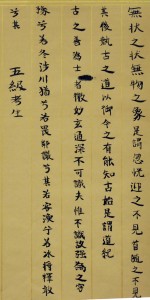 無状之状無物之象是謂忽恍迎之不見首随之不見
其後執古之道以御今之有能知古始是謂道紀
古之善為士者微妙玄通深不可識夫惟不識故强為之容
豫兮若冬涉川猶兮若畏鄰兮其若客渙兮若冰将释敦
兮其 五級考生